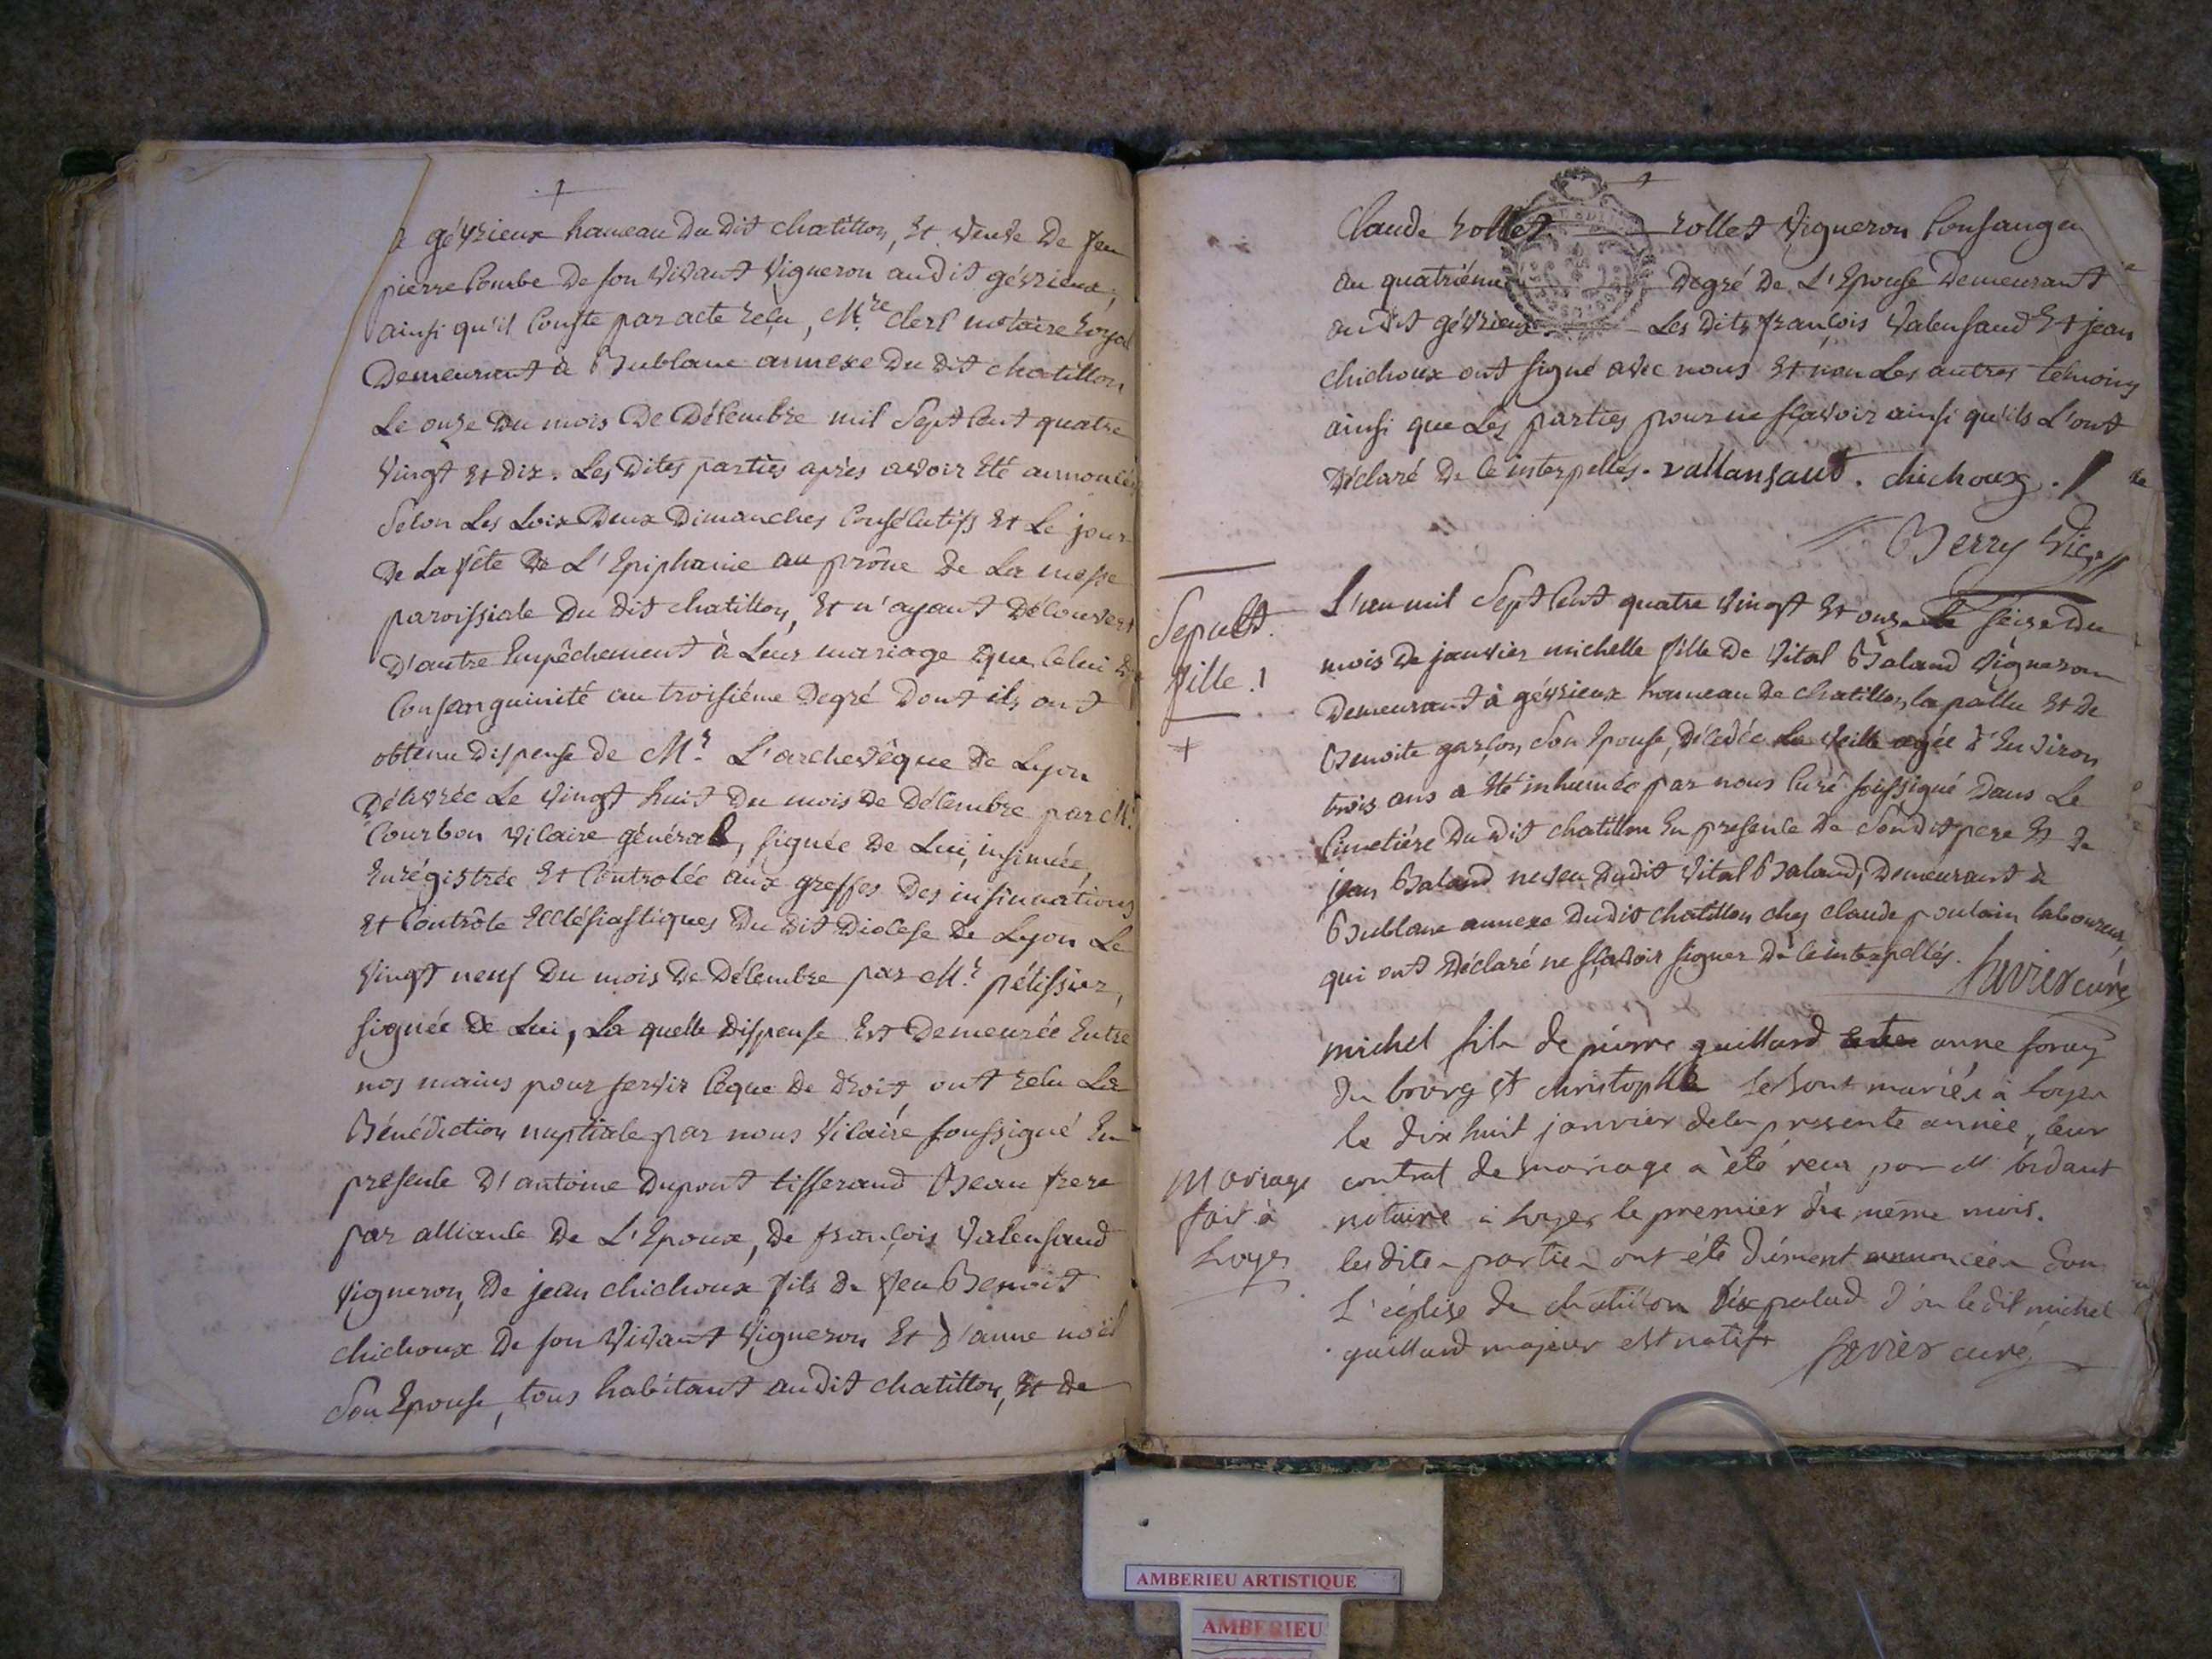 à gévrieux hameau du dit chatillon, Et veuve de feu
pierre Combe de son vivant vigneron audit gévrieux,
ainsi qu'il Conste par acte reçu, M.re clerc notaire royal
Demeurant à Bublane annexe du dit chatillon
Le onze du mois de Décembre mil Sept Cent quatre
vingt et dix. Les dites parties après avoir été annoncées
Selon Les Loix Deux Dimanches Consécutifs Et Le jour
De La fête de L'Epiphanie au prône de La messe
paroissiale du dit chatillon, Et n'ayant Découvert
D'autre Empêchement à Leur mariage que Celui de
Consanguinité au troisiéme Degré Dont ils ont
obtenu dispense de M.r L'archevêque de Lyon
Délivrée Le vingt huit du mois de Décembre par M.r
Courbon vicaire général, signée de Lui, insinuée,
Enrégistrée Et Controlée aux greffes des insinuations
Et Contrôle Ecclésiastiques du dit Diocese de Lyon Le
vingt neuf du mois de Décembre par M.r pélissier,
signée de Lui, La quelle dispense Est Demeurée Entre
nos mains pour servir Ceque de droit, ont reçu La
Bénédiction nuptiale par nous vicaire soussigné En
presence D'antoine dupont tisserand Beau frere
par alliance de L'Epoux, de françois valensaud
vigneron, de jean chichoux fils de feu Benoit
chichoux de son vivant vigneron Et D'anne noël
Son Epouse, tous habitant audit chatillon, Et de
Claude rollet rollet vigneron Consanguin
au quatriéme Degré de L'Epouse Demeurant
au dit gévrieux Les dits françois valensaud Et jean
chichoux ont signé avec nous Et non Les autres témoins
ainsi que Les parties pour ne sçavoir ainsi qu'ils L'ont
Déclaré de Ce interpellés. vallansaut. chichoux.
Berry vic.
Sepult.
fille.
L'an mil Sept Cent quatre vingt Et onze Le seize du
mois de janvier michelle fille de vital Baland vigneron
Demeurant à gévrieux hameau de chatillon la pallu Et de
Benoite garçon Son Epouse, décédée La veille agée d'Environ
trois ans a été inhumée par nous Curé soussigné Dans Le
Cimetiére du dit chatillon En presence de Sondit pere Et de
jean Baland neveu dudit vital Baland, Demeurant à
Bublane annexe dudit chatillon chez claude poulain laboureur,
qui ont Déclaré ne sçavoir signer de Ce interpellés.
Savier curé
michel fils de pierre guillard anne foray
du bourg st christophle se sont mariés à loyes
le dix huit janvier dela presente année, leur
mariage
fait à
Loyes
contrat de mariage a été reçu par M.
notaire à loyes le premier du même mois.
les dites parties ont été duement annoncées dans
L'église de chatillon la palud d'ou ledit michel
guillard majeur est natif
Savier curé
AMBERIEU ARTISTIQUE
AMBERIEU